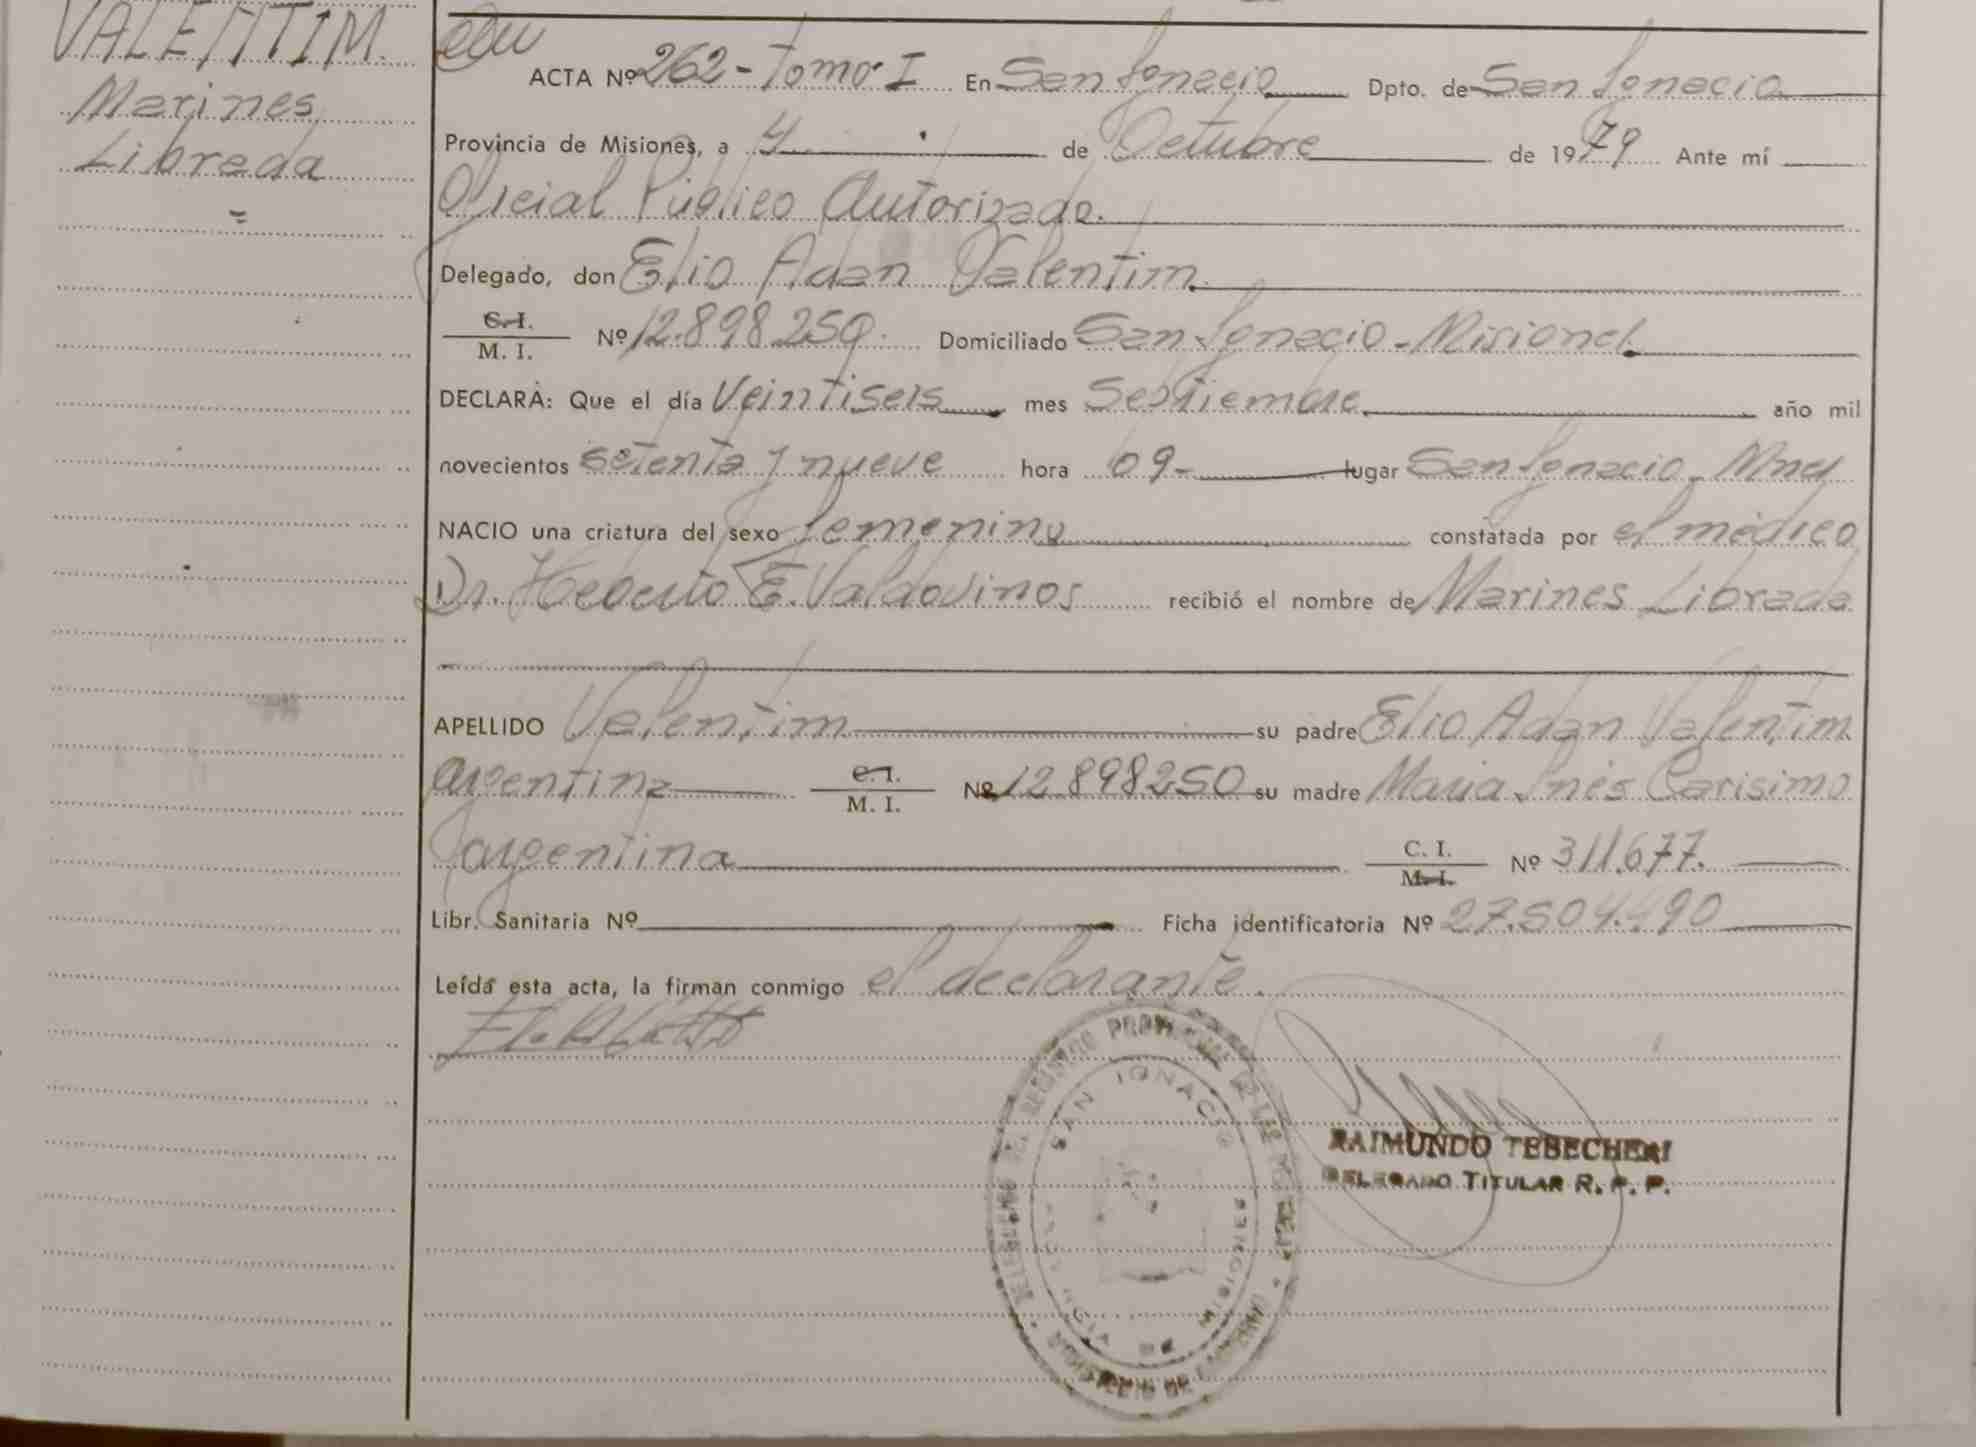 VALENTIM.
Marines
Librada
=
ACTA Nº 262 - Tomo I En San Ignacio Dpto. de San Ignacio
Provincia de Misiones, a 4 de Octubre de 1979 Ante mí
Oficial Público Autorizado.
Delegado, don Elio Adan Valentim.
C.I.
M. I. Nº 12.898.250. Domiciliado San Ignacio - Misiones.
DECLARA: Que el día Veintiseis mes Septiembre año mil
novecientos setenta y nueve hora 09- lugar San Ignacio - Mnes
NACIO una criatura del sexo femenino constatada por el médico
Dr. Heberto E. Valdovinos recibió el nombre de Marines Librada
APELLIDO Valentim su padre Elio Adan Valentim.
argentina C.I.
M. I. Nº 12.898250 su madre Maria Inés Carisimo
argentina C. I.
M. I. Nº 311.677.
Libr. Sanitaria Nº Ficha identificatoria Nº 27.504.490
Leída esta acta, la firman conmigo el declarante.
SAN IGNACIO
RAIMUNDO TEBECHERI
DELEGADO TITULAR R. P. P.